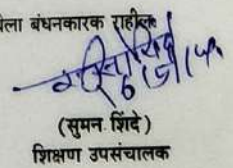 ला बंधनकारक राहील.
(सुमन शिंदे)
शिक्षण उपसंचालक